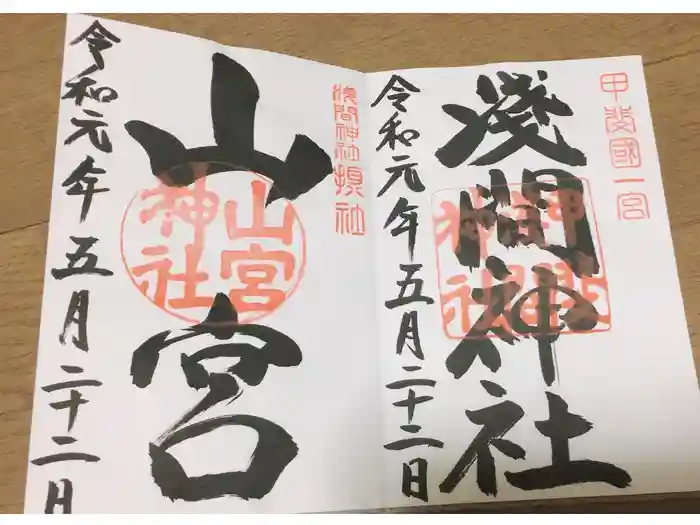 甲斐國一宮
淺間神社
令和元年五月二十二日
淺間神社摂社
山宮
山宮神社
令和元年五月二十二日